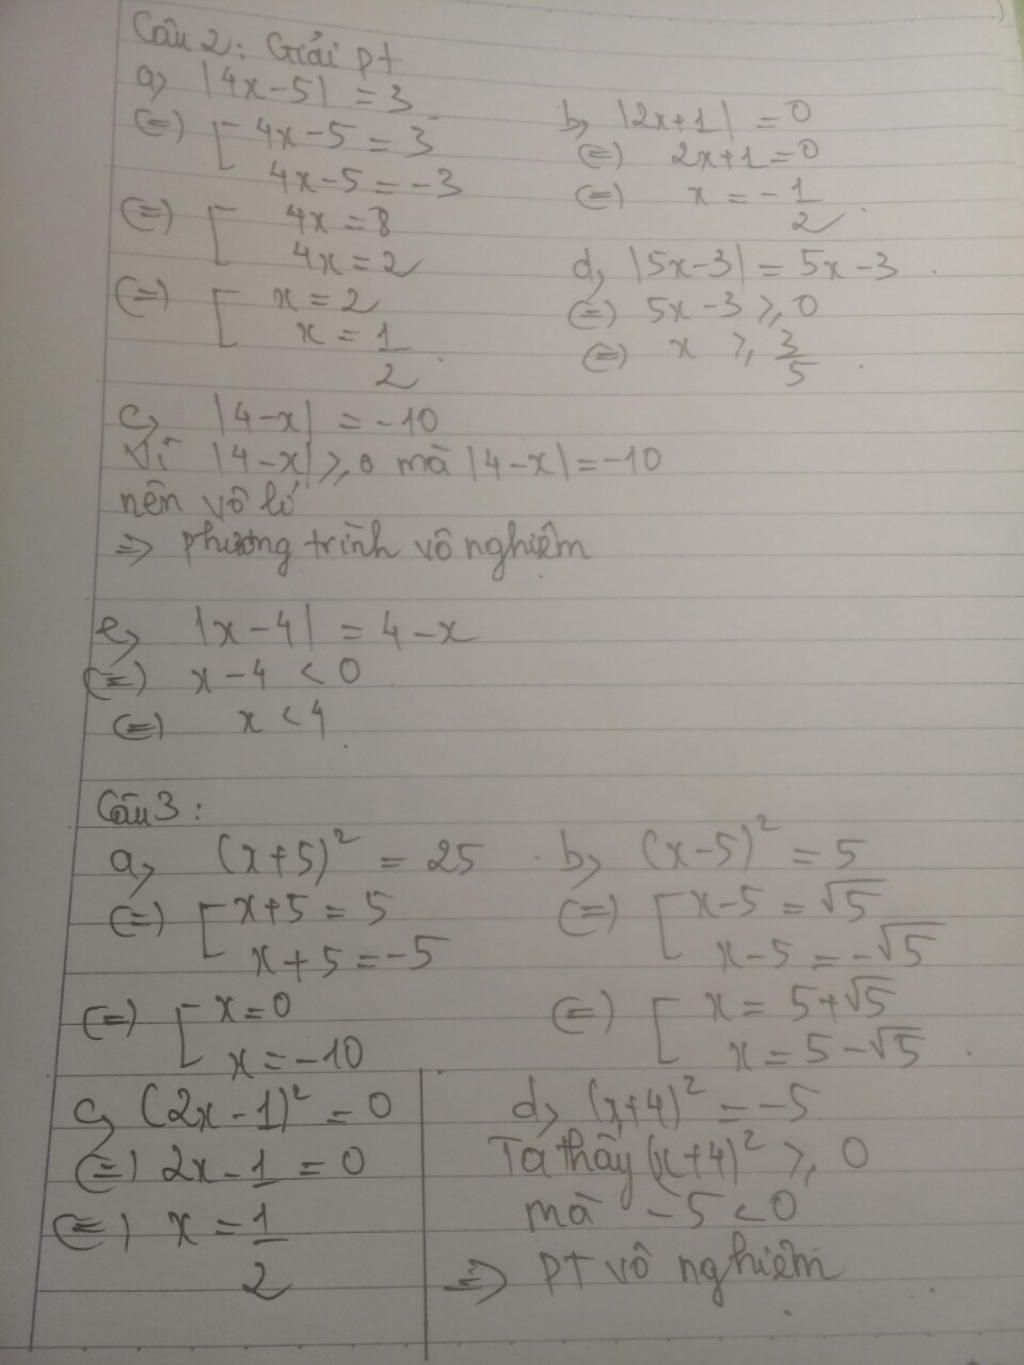 Câu 2: Giải pt
a, |4x-5| = 3
(=) [ 4x-5 = 3
4x-5 = -3
(=) [ 4x = 8
4x = 2
(=) [ x = 2
x = 1/2.
b, |2x+1| = 0
(=) 2x+1 = 0
(=) x = -1/2.
d, |5x-3| = 5x-3.
(=) 5x-3 ⩾ 0
(=) x ⩾ 3/5.
c, |4-x| = -10
Vì |4-x| ⩾ 0 mà |4-x| = -10
nên vô lí
=> phương trình vô nghiệm.
e, |x-4| = 4-x
(=) x-4 < 0
(=) x < 4.
Câu 3:
a, (x+5)² = 25.
(=) [ x+5 = 5
x+5 = -5
(=) [ x = 0
x = -10
b, (x-5)² = 5
(=) [ x-5 = √5
x-5 = -√5
(=) [ x = 5+√5
x = 5-√5.
c, (2x-1)² = 0
(=) 2x-1 = 0
(=) x = 1/2
d, (x+4)² = -5
Ta thấy (x+4)² ⩾ 0
mà -5 < 0
=> PT vô nghiệm.